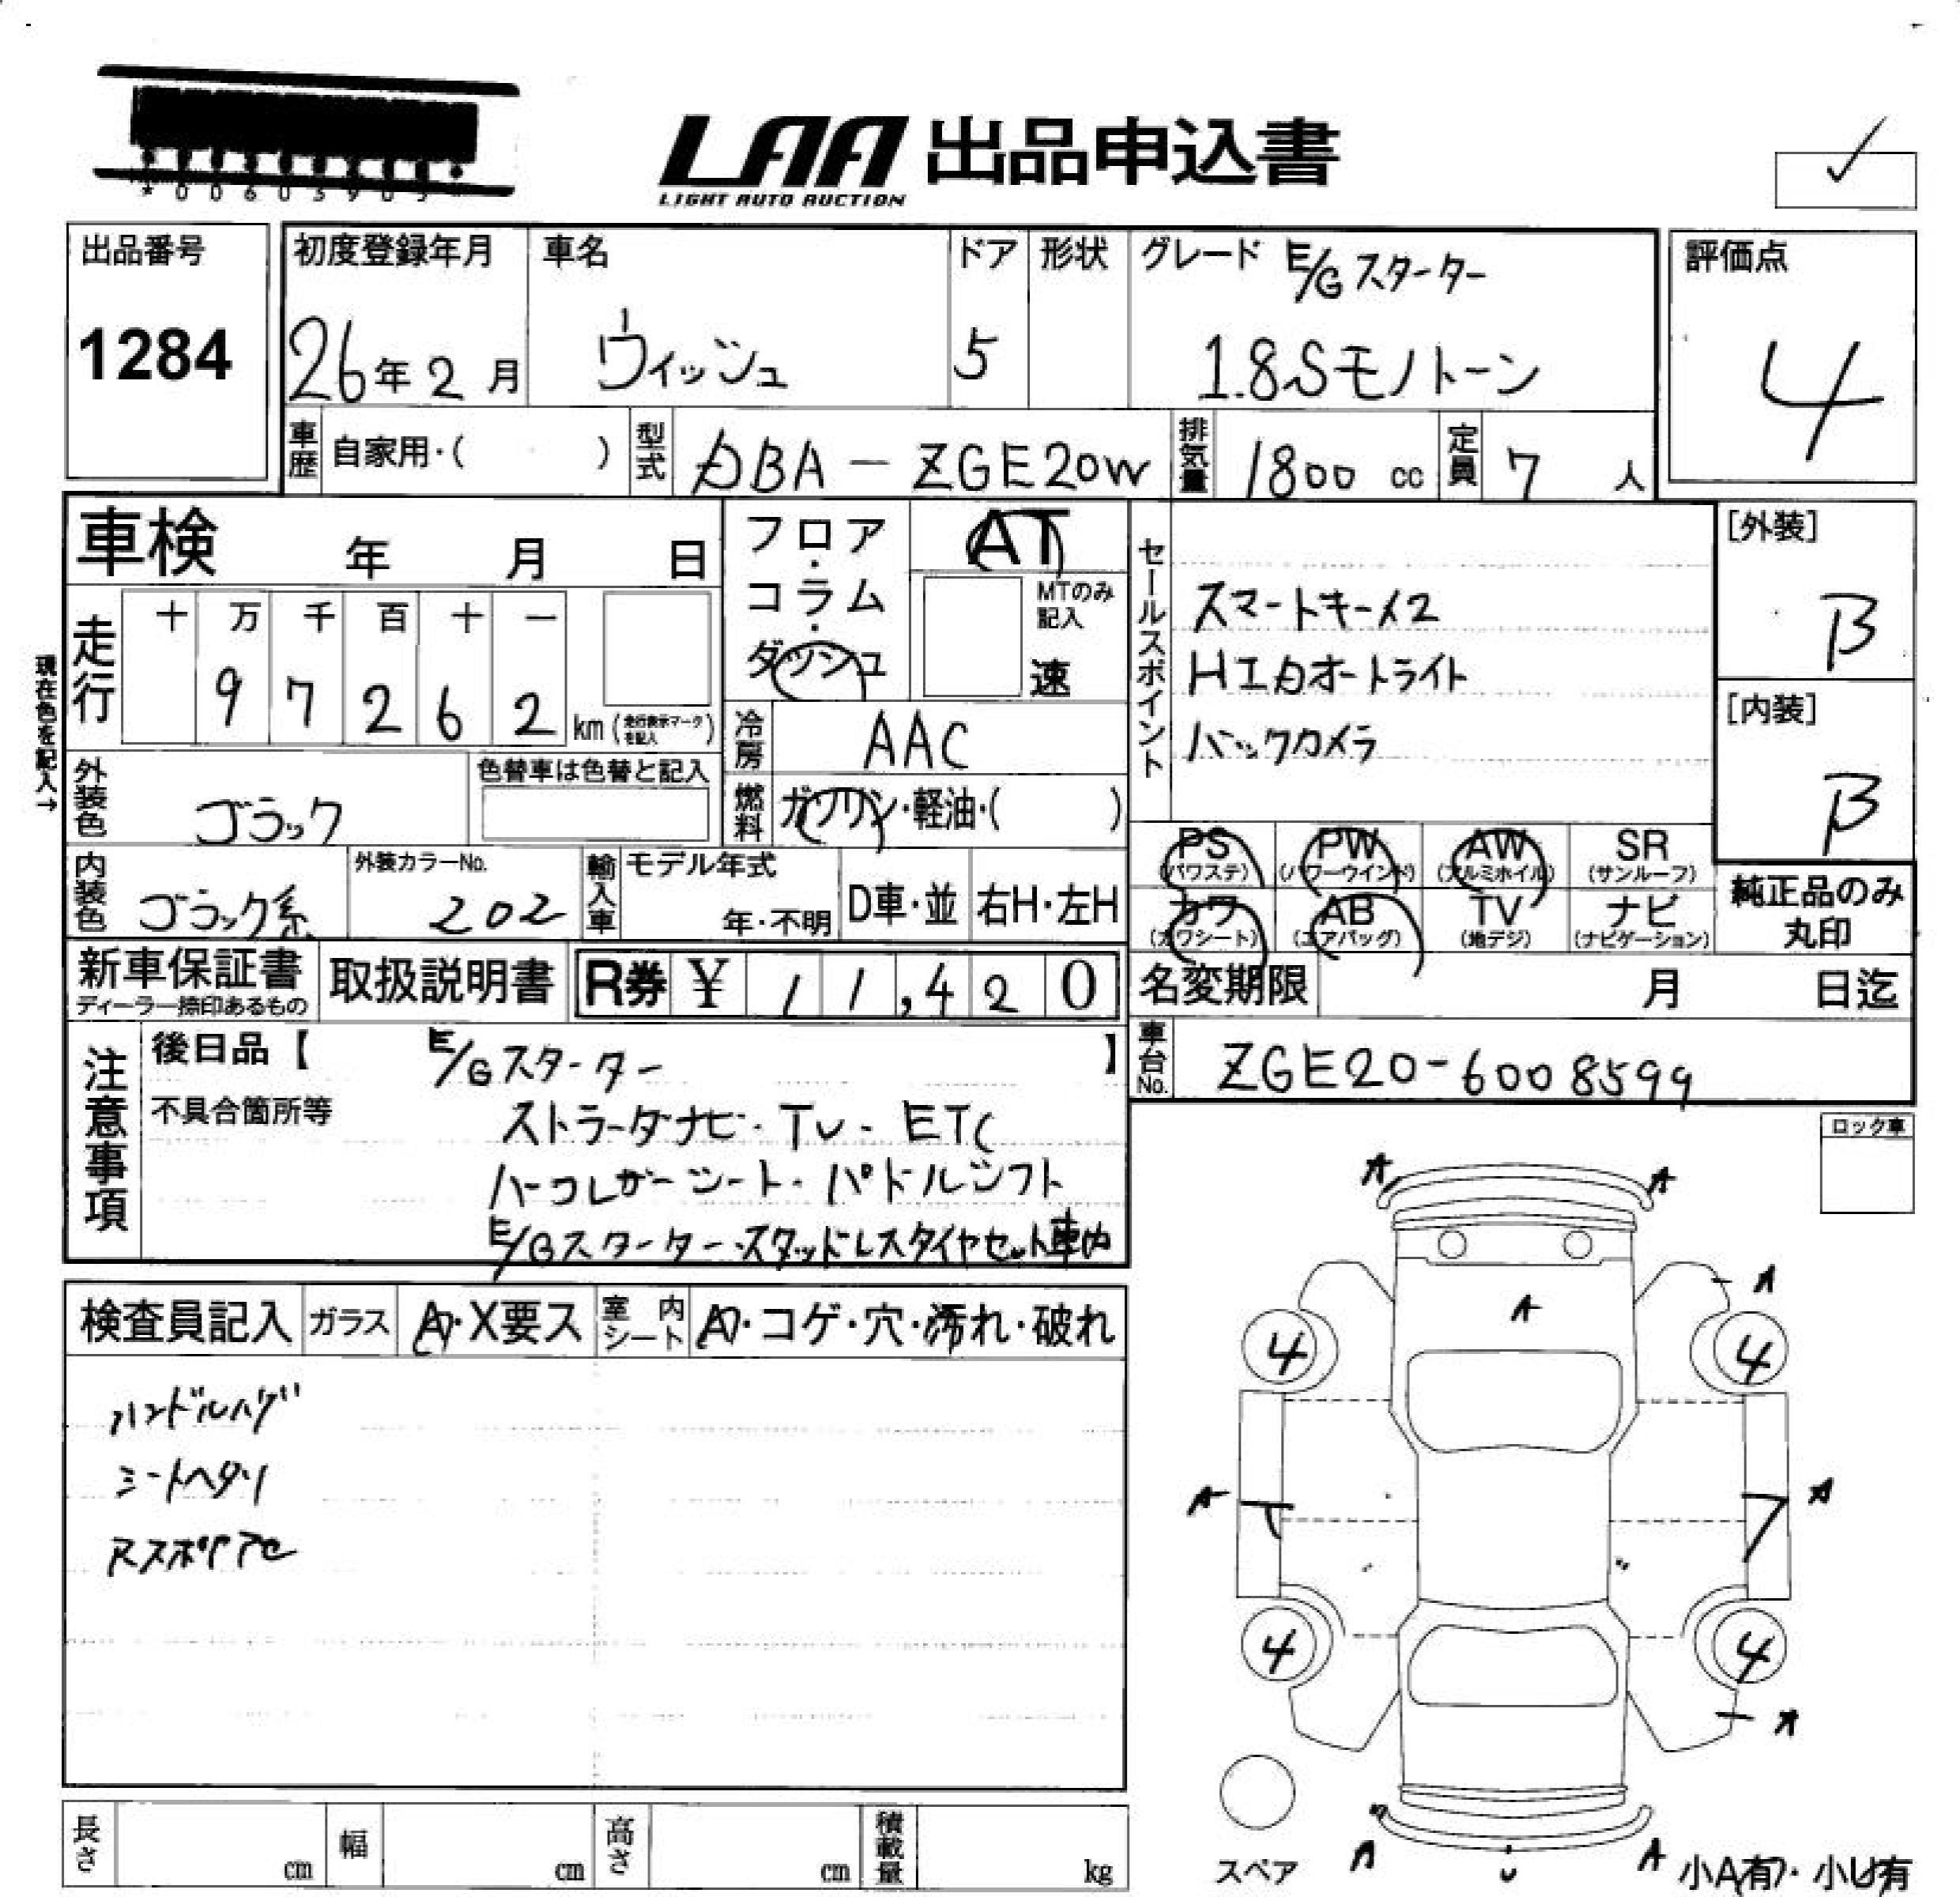 *00605903*
LAA 出品申込書
LIGHT AUTO AUCTION
出品番号
1284
初度登録年月
26年2月
車名
ウィッシュ
ドア
5
形状
グレード E/Gスターター
1.8Sモノトーン
評価点
4
車歴 自家用・( )
型式 DBA-ZGE20W
排気量 1800 cc
定員 7 人
車検 年 月 日
フロア・コラム・ダッシュ
AT
MTのみ記入
速
セールスポイント
スマートキーメ2
HIDオートライト
バックカメラ
[外装]
B
[内装]
B
現在色を記入→
走行
十 万 千 百 十 一
9 7 2 6 2 km (走行表示マークを記入)
冷房 AAC
燃料 ガソリン・軽油・( )
外装色 ブラック
色替車は色替と記入
内装色 ブラック系
外装カラーNo.
202
輸入車 モデル年式
年・不明
D車・並
右H・左H
PS (パワステ)
PW (パワーウインド)
AW (アルミホイル)
SR (サンルーフ)
カワ (カワシート)
AB (エアバッグ)
TV (地デジ)
ナビ (ナビゲーション)
純正品のみ
丸印
新車保証書
ディーラー捺印あるもの
取扱説明書
R券 ¥ 11,420
名変期限 月 日迄
車台No. ZGE20-6008599
注意事項
後日品【 E/Gスターター 】
不具合箇所等
ストラーダナビ・TV・ETC
ハーフレザーシート・パドルシフト
E/Gスターター・スタッドレスタイヤセット車内
ロック車
検査員記入
ガラス A・X要ス
室内シート A・コゲ・穴・汚れ・破れ
ハンドルハゲ
シートヘタリ
A A
A
A
4 4
A A
4 4
A
スペア
A A
小A有・小U有
長さ cm
幅 cm
高さ cm
積載量 kg